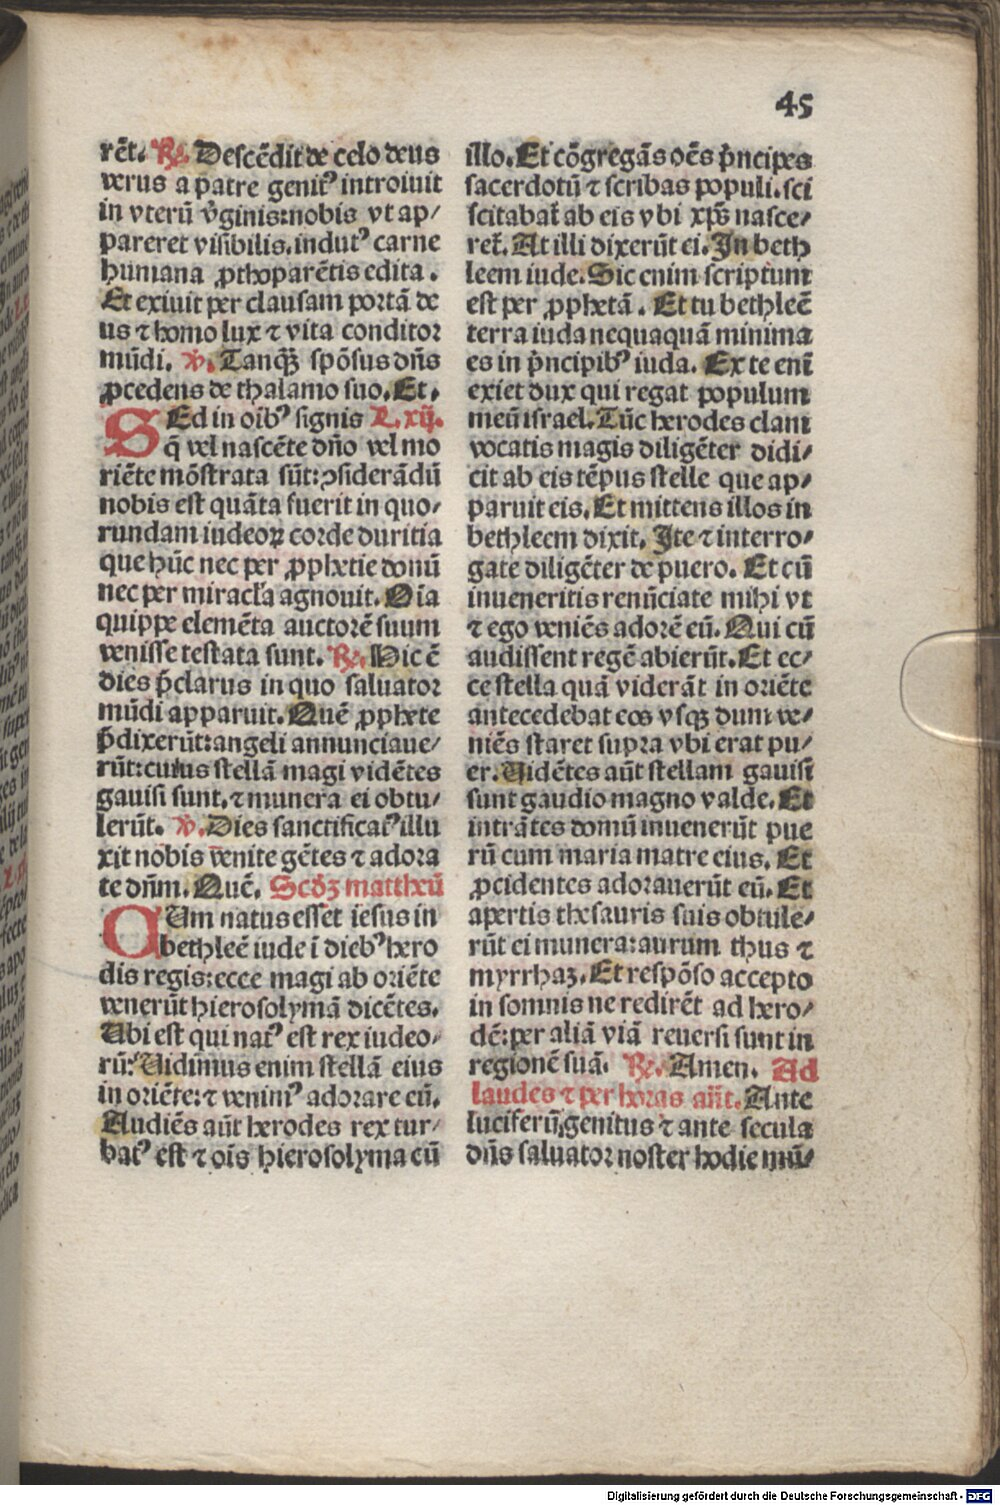 45
rēt. ℟. Descēdit de celo deus
verus a patre genitꝰ introiuit
in vterū v̄ginis:nobis vt ap/
pareret visibilis.indutꝰ carne
humana ꝓthoparētis edita.
Et exiuit per clausam portā de
us ⁊ homo lux ⁊ vita conditor
mūdi. ℣. Tanqꝫ spōsus dn̄s
ꝓcedens de thalamo suo. Et.
SEd in oībꝰ signis L. xij.
q̄ vel nascēte dn̄o vel mo
riēte mōstrata sūt:ↄsiderādū
nobis est quāta fuerit in quo/
rundam iudeoꝝ corde duritia
que hūc nec per ꝓphetie donū
nec per miracl'a agnouit. Oīa
quippe elemēta auctorē suum
venisse testata sunt. ℟. Hic ē
dies p̄clarus in quo saluator
mūdi apparuit. Quē ꝓphete
p̄dixerūt:angeli annunciaue/
rūt:cuius stellā magi vidētes
gauisi sunt.⁊ munera ei obtu/
lerūt. ℣. Dies sanctificatꝰ illu
xit nobis venite gētes ⁊ adora
te dn̄m. Quē. Scd̄ꝫ mattheū
CUm natus esset iesus in
bethleē iude ī diebꝰ hero
dis regis:ecce magi ab oriēte
venerūt hierosolymā dicētes.
Ubi est qui natꝰ est rex iudeo/
rū? Uidimus enim stellā eius
in oriēte:⁊ venimꝰ adorare eū.
Audiēs aūt herodes rex tur/
batꝰ est ⁊ oīs hierosolyma cū
illo. Et cōgregās oēs p̄ncipes
sacerdotū ⁊ scribas populi.sci
scitabat̄ ab eis vbi xp̄s nasce/
ret̄. At illi dixerūt ei. In beth
leem iude. Sic enim scriptum
est per ꝓphetā. Et tu bethleē
terra iuda nequaquā minima
es in p̄ncipibꝰ iuda. Ex te enī
exiet dux qui regat populum
meū israel. Tūc herodes clam
vocatis magis diligēter didi/
cit ab eis tēpus stelle que ap/
paruit eis. Et mittens illos in
bethleem dixit. Ite ⁊ interro/
gate diligēter de puero. Et cū
inueneritis renūciate mihi vt
⁊ ego veniēs adorē eū. Qui cū
audissent regē abierūt. Et ec/
ce stella quā viderāt in oriēte
antecedebat eos vsqꝫ dum ve/
niēs staret supra vbi erat pu/
er. Uidētes aūt stellam gauisi
sunt gaudio magno valde. Et
intrātes domū inuenerūt pue
rū cum maria matre eius. Et
ꝓcidentes adorauerūt eū. Et
apertis thesauris suis obtule/
rūt ei munera:aurum thus ⁊
myrrhaꝫ. Et respōso accepto
in somnis ne redirēt ad hero/
dē:per aliā viā reuersi sunt in
regionē suā. ℟. Amen. Ad
laudes ⁊ per horas an̄t. Ante
luciferū genitus ⁊ ante secula
dn̄s saluator noster hodie mū/
Digitalisierung gefördert durch die Deutsche Forschungsgemeinschaft - DFG